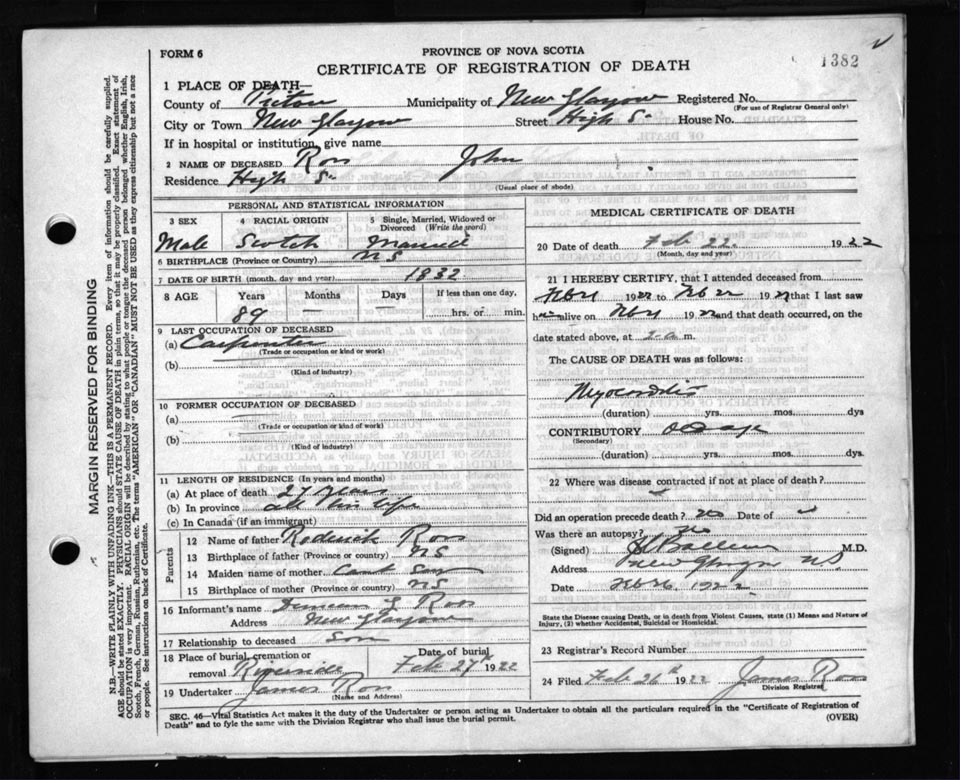 FORM 6
PROVINCE OF NOVA SCOTIA
1382
CERTIFICATE OF REGISTRATION OF DEATH
1 PLACE OF DEATH—
County of Pictou Municipality of New Glasgow Registered No.
(For use of Registrar General only)
City or Town New Glasgow Street High St House No.
If in hospital or institution, give name
2 NAME OF DECEASED Ross John
Residence High St
(Usual place of abode)
PERSONAL AND STATISTICAL INFORMATION
3 SEX 4 RACIAL ORIGIN 5 Single, Married, Widowed or Divorced (Write the word)
Male Scotch Married
6 BIRTHPLACE (Province or Country) NS
7 DATE OF BIRTH (month, day and year) 1832
8 AGE Years Months Days If less than one day,
89 hrs. or min.
9 LAST OCCUPATION OF DECEASED
(a) Carpenter
(Trade or occupation or kind or work)
(b)
(Kind of industry)
10 FORMER OCCUPATION OF DECEASED
(a)
(Trade or occupation or kind or work)
(b)
(Kind of industry)
11 LENGTH OF RESIDENCE (In years and months)
(a) At place of death 27 years
(b) In province all his life
(c) In Canada (if an immigrant)
Parents
12 Name of father Roderick Ross
13 Birthplace of father (Province or country) NS
14 Maiden name of mother Cant say
15 Birthplace of mother (Province or country) NS
16 Informant's name Duncan J. Ross
Address New Glasgow
17 Relationship to deceased Son
18 Place of burial, cremation or removal Riverside Date of burial Feb 27th 1922
19 Undertaker James Ross
(Name and Address)
MEDICAL CERTIFICATE OF DEATH
20 Date of death Feb 22 1922
(Month, day and year)
21 I HEREBY CERTIFY, that I attended deceased from
1922 to Feb 22 1922 that I last saw
him alive on 1922 and that death occurred, on the
date stated above, at 2 a m.
The CAUSE OF DEATH was as follows:
Myocarditis
(duration) yrs. mos. dys
CONTRIBUTORY Old age
(Secondary)
(duration) yrs. mos. dys.
22 Where was disease contracted if not at place of death?
Did an operation precede death? No Date of
Was there an autopsy? No
(Signed) M.D.
Address New Glasgow NS
Date Feb 26 1922
State the Disease causing Death, or in death from Violent Causes, state (1) Means and Nature of
Injury, (2) whether Accidental, Suicidal or Homicidal.
23 Registrar's Record Number
24 Filed Feb 26th 1922 James Ross
Division Registrar
SEC. 46—Vital Statistics Act makes it the duty of the Undertaker or person acting as Undertaker to obtain all the particulars required in the "Certificate of Registration of
Death" and to fyle the same with the Division Registrar who shall issue the burial permit.
(OVER)
MARGIN RESERVED FOR BINDING
N.B.—WRITE PLAINLY WITH UNFADING INK—THIS IS A PERMANENT RECORD. Every item of information should be carefully supplied.
AGE should be stated EXACTLY. PHYSICIANS should STATE CAUSE OF DEATH in plain terms, so that it may be properly classified. Exact statement of
OCCUPATION is very important. RACIAL ORIGIN will be described by stating to what people or tongue the deceased person belonged whether English, Irish,
Scotch, French, German, Russian, Ruthenian, etc. The terms "AMERICAN" OR "CANADIAN" MUST NOT BE USED as they express citizenship but not a race
or people. See instructions on back of Certificate.